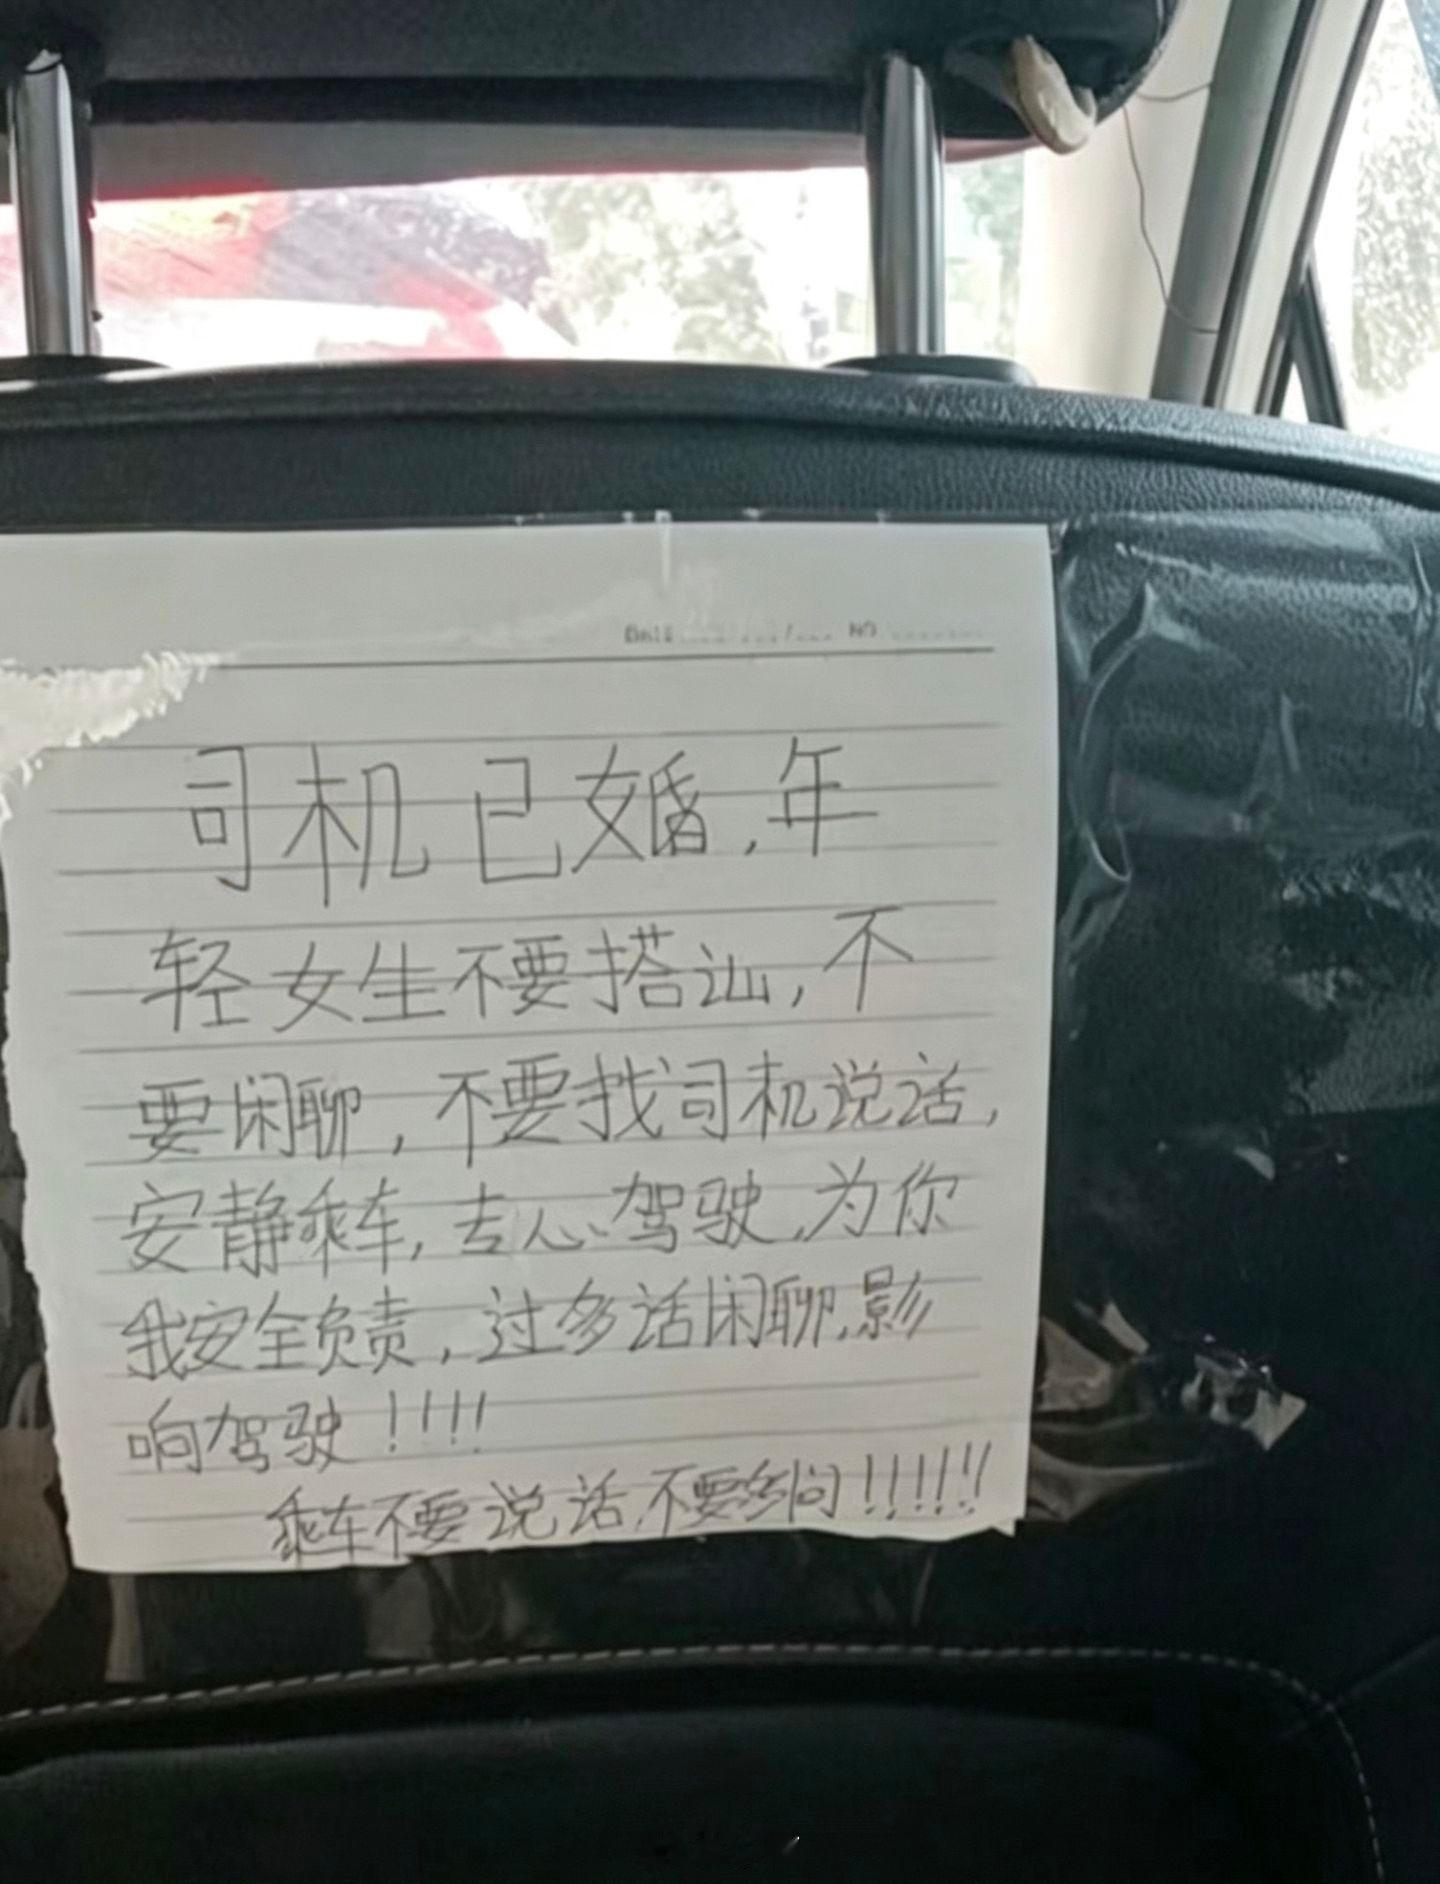 Date NO
司机已婚,年
轻女生不要搭讪,不
要闲聊,不要找司机说话,
安静乘车,专心驾驶,为你
我安全负责,过多话闲聊,影
响驾驶!!!!
乘车不要说话,不要多问!!!!!!